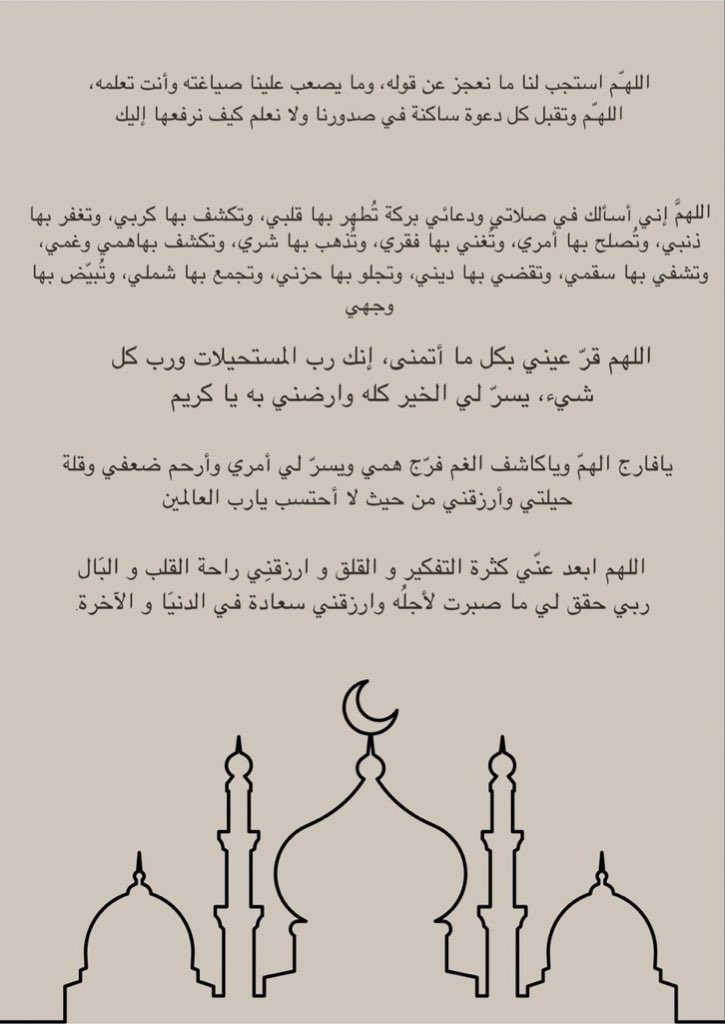 اللهـّم استجب لنا ما نعجز عن قوله، وما يصعب علينا صياغته وأنت تعلمه،
اللهـّم وتقبل كل دعوة ساكنة في صدورنا ولا نعلم كيف نرفعها إليك
اللهمَّ إني أسألك في صلاتي ودعائي بركة تُطهر بها قلبي، وتكشف بها كربي، وتغفر بها
ذنبي، وتُصلح بها أمري، وتُغني بها فقري، وتُذهب بها شري، وتكشف بهاهمي وغمي،
وتشفي بها سقمي، وتقضي بها ديني، وتجلو بها حزني، وتجمع بها شملي، وتُبيّض بها
وجهي
اللهم قرّ عيني بكل ما أتمنى، إنك رب المستحيلات ورب كل
شيء، يسرّ لي الخير كله وارضني به يا كريم
يافارج الهمّ وياكاشف الغم فرّج همي ويسرّ لي أمري وأرحم ضعفي وقلة
حيلتي وأرزقني من حيث لا أحتسب يارب العالمين
اللهم ابعد عنّي كثرة التفكير و القلق و ارزقنِي راحة القلب و البَال
ربي حقق لي ما صبرت لأجلُه وارزقني سعادة في الدنيَا و الآخرة.